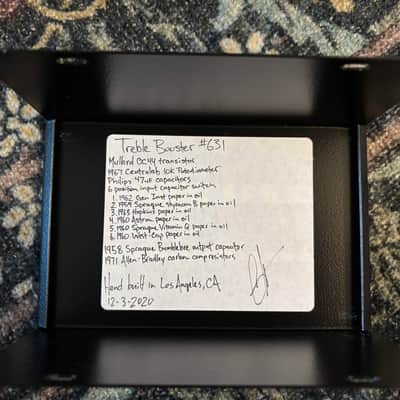 Treble Booster #631
Mullard OC44 transistor
1967 Centralab 10K Potentiometer
Philips 47uF capacitors
6 position input capacitor switch:
1. 1962 Gen Inst paper in oil
2. 1959 Sprague Styracon B paper in oil
3. 1963 Hopkins paper in oil
4. 1960 Astron paper in oil
5. 1960 Sprague Vitamin Q paper in oil
6. 1960 West-Cap paper in oil
1958 Sprague Bumblebee output capacitor
1971 Allen-Bradley carbon comp resistors
Hand built in Los Angeles, CA
12-3-2020